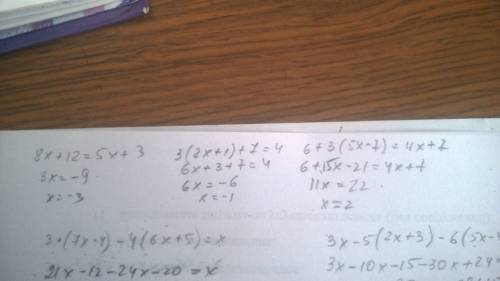 8x+12=5x+3
3x=-9
x=-3
3(2x+1)+7=4
6x+3+7=4
6x=-6
x=-1
6+3(5x-7)=4x+7
6+15x-21=4x+7
11x=22
x=2
3·(7x-4)-4(6x+5)=x
21x-12-24x-20=x
3x-5(2x+3)-6(5x-4
3x-10x-15-30x+24=